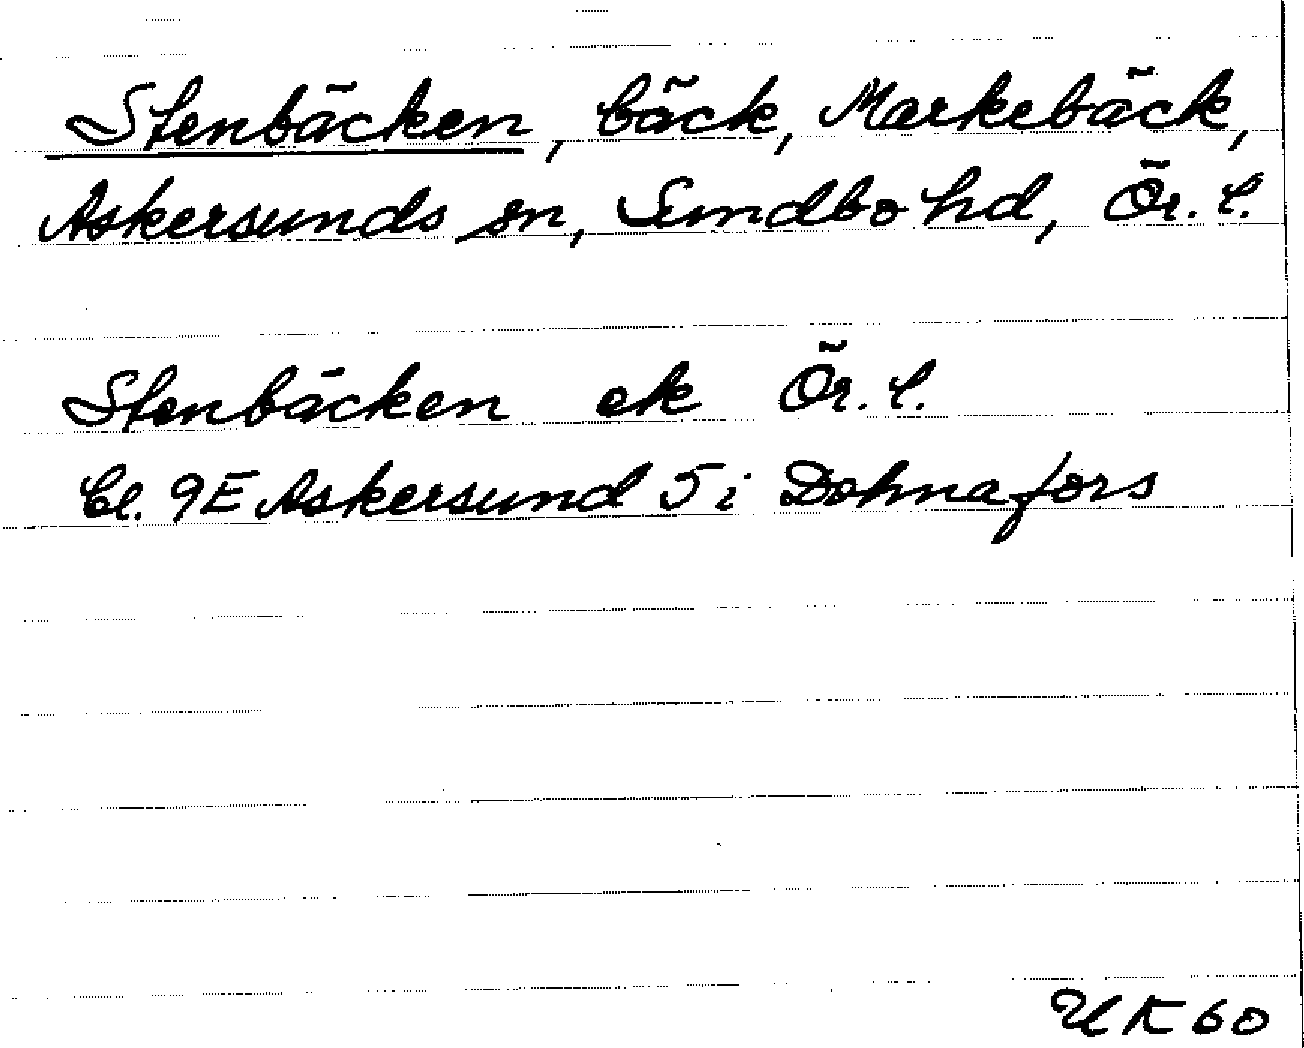 Stenbäcken, bäck, Markebäck,
Askersunds sn, Sundbo hd, Ör. l.
Stenbäcken ek Ör. l.
Bl. 9E Askersund 5i Dohnafors
UK60